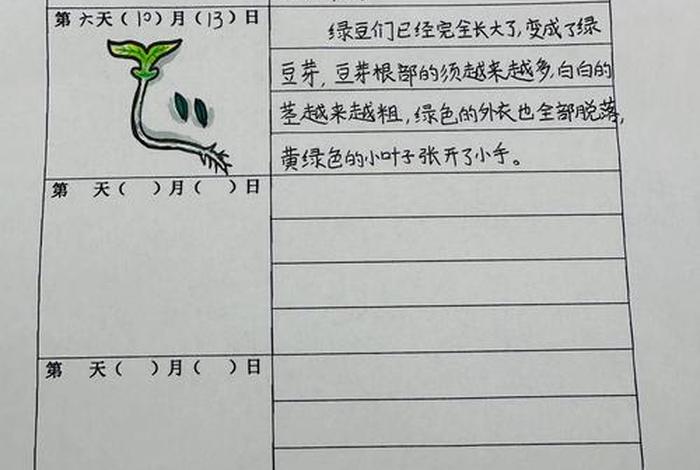 第六天(10)月(13)日
绿豆们已经完全长大了,变成了绿
豆芽,豆芽根部的须越来越多,白白的
茎越来越粗,绿色的外衣也全部脱落,
黄绿色的小叶子张开了小手。
第 天( )月( )日
第 天( )月( )日